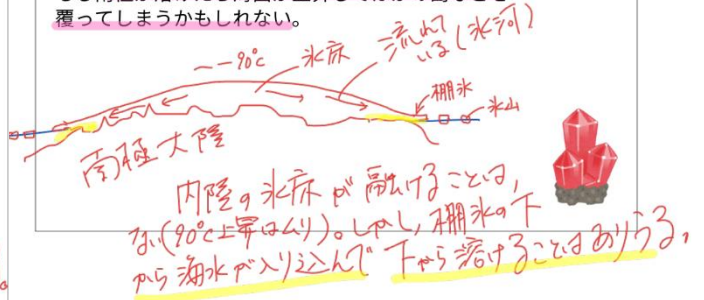 覆ってしまうかもしれない。
~-90℃
氷床
流れて
いる(氷河)
棚氷
氷山
南極大陸
内陸の氷床が融けることは、
ない(90℃上昇はムリ)。しかし、棚氷の下
から海水が入り込んで下から溶けることはありうる。